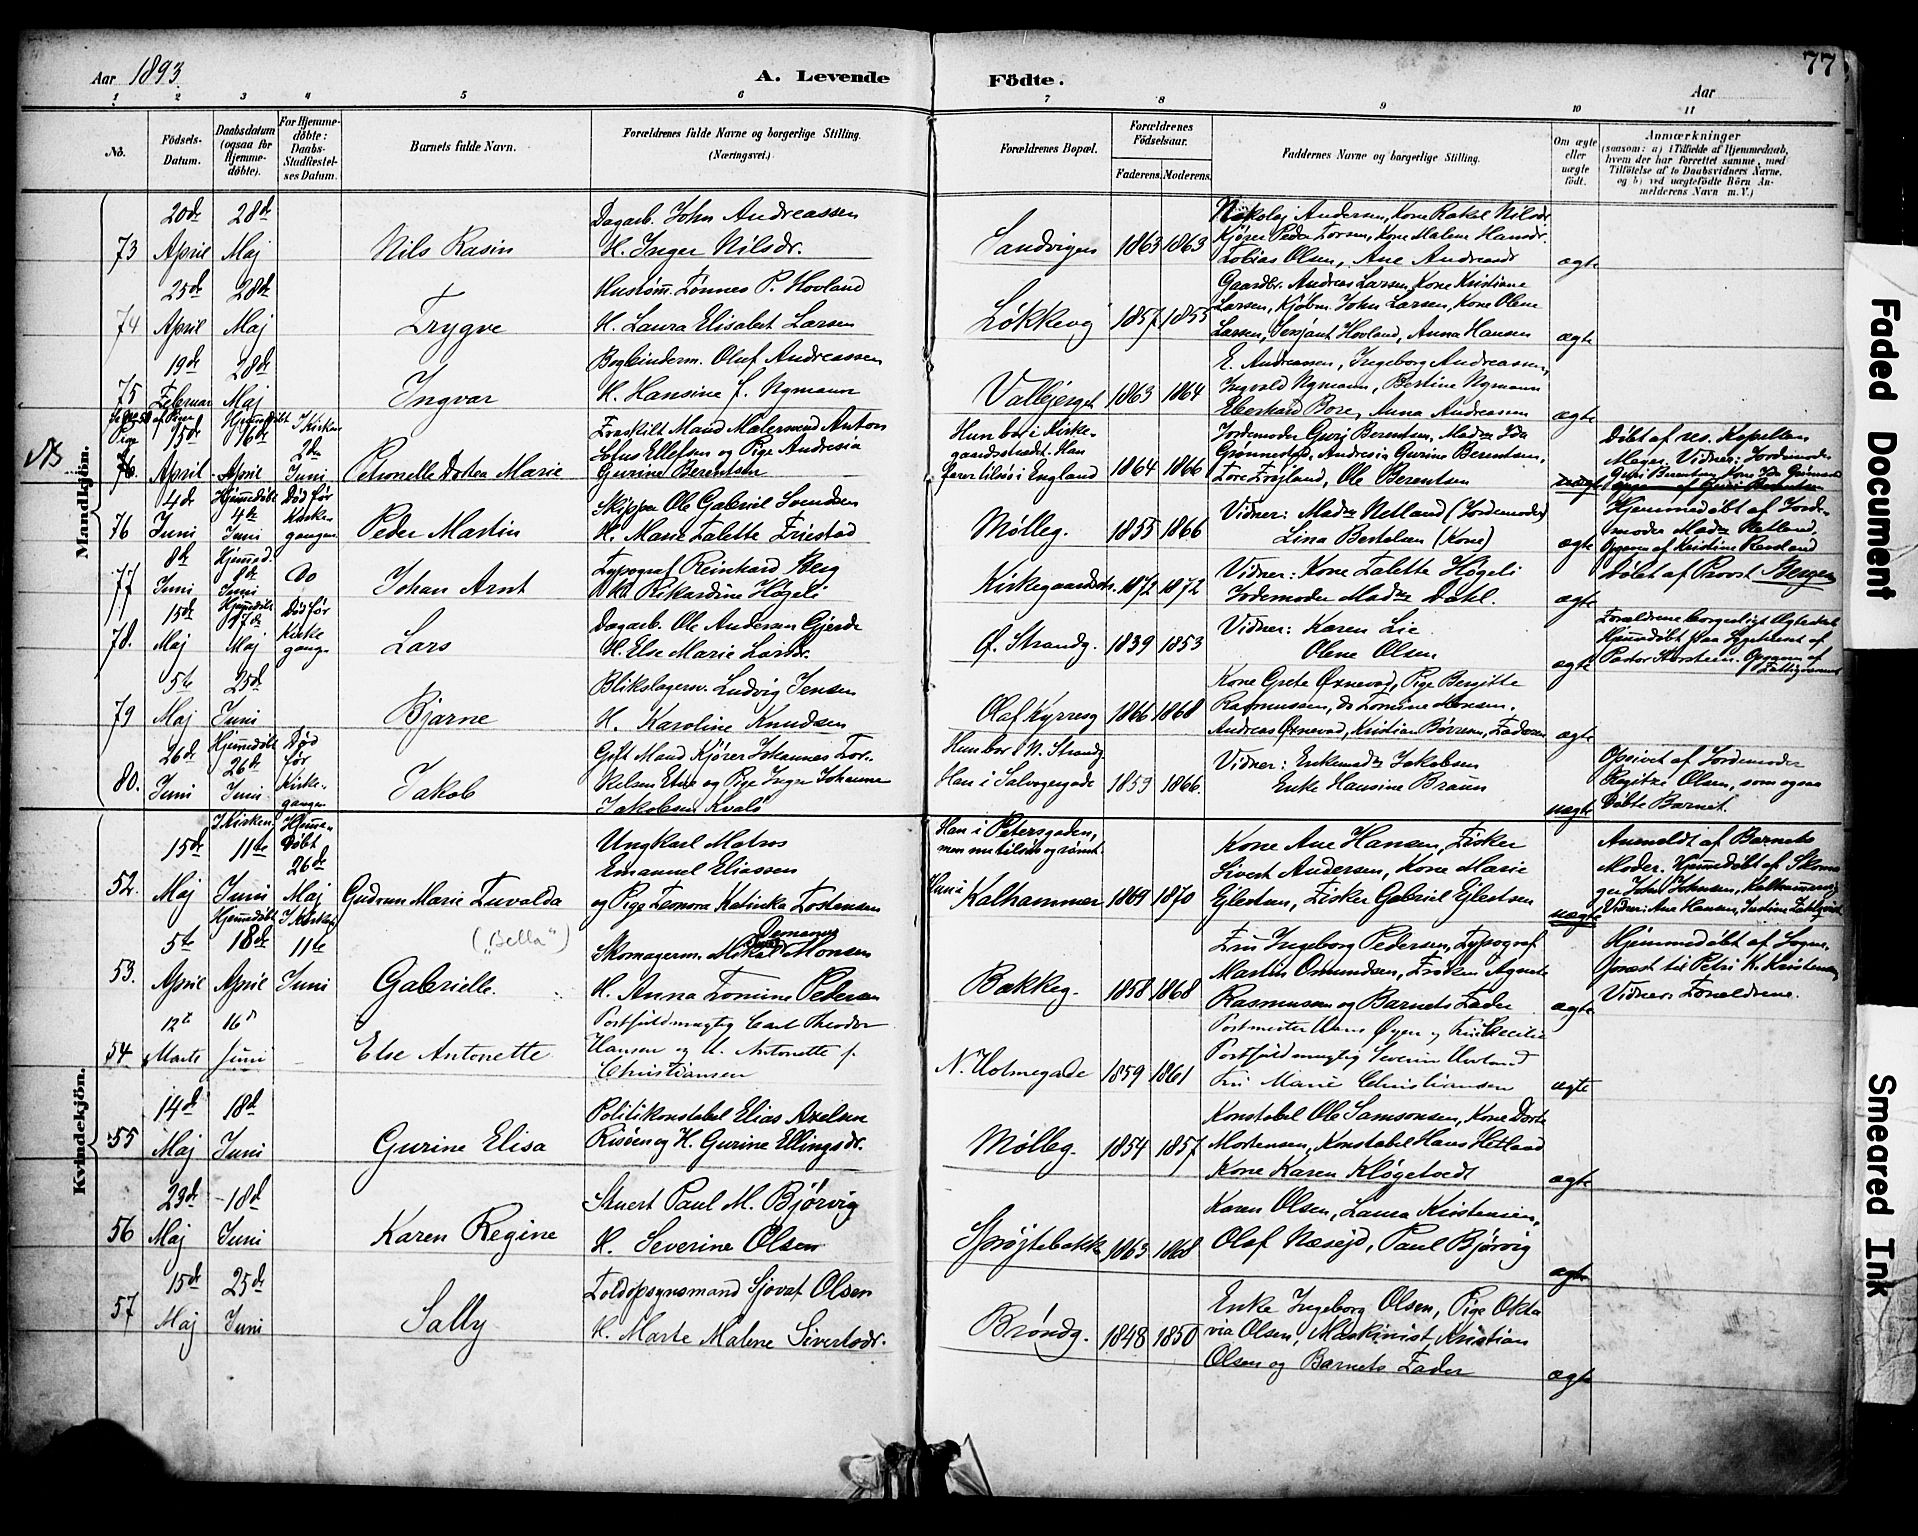 Aar 1893.
A. Levende Födte.
Aar
77
1 2 3 4 5 6 7 8 9 10 11
No.
Födsels-Datum.
Daabsdatum (ogsaa for Hjemme-døbte).
For Hjemme-døbte: Daabs-Stadfæstel-ses Datum.
Barnets fulde Navn.
Forældrenes fulde Navne og borgerlige Stilling. (Næringsvei.)
Forældrenes Bopæl.
Forældrenes Födselsaar.
Faderens. Moderens.
Faddernes Navne og borgerlige Stilling.
Om ægte eller uægte födt.
Anmærkninger
(saasom: a) i Tilfælde af Hjemmedaab,
hvem der har forrettet samme, med
Tilføielse af to Daabsvidners Navne,
og b) ved uægtefödte Börn An-
melderens Navn m. V.)
Mandkjön.
73 20de April 28de Maj
Nils Rasin
Dagarb. John Andreassen
H. Inger Nilsdr.
Sandvigen 1863 1863
Nikolaj Andersen, Kone Rakel Nilsdr.
Kjører Peder Torsen, Kone Malene Hansdr.
Tobias Olsen, Ane Andreasdr
ægte
74 25de April 28de Maj
Trygve
Hustøm. Tønnes P. Hovland
H. Laura Elisabet Larsen
Løkkevg 1857 1855
Gaardbr. Andreas Larsen, Kone Kristiane
Larsen, Kjøbm. John Larsen, Kone Olene
Larsen, Sersjant Hovland, Anna Hansen
ægte
75 19de Februar 28de Maj
Ingvar
Bogbinderm. Oluf Andreassen
H. Hansine f. Nymann
Valbjerget 1863 1864
E. Andreassen, Ingeborg Andreassen,
Ingvald Nymann, Bertine Nymann
Eberhard Bore, Anna Andreassen
ægte
NB
76. 15de April Hjemmedøbt 16de April I Kirken 2den Juni
Petronelle Dothea Marie
Fraskilt Mand Malersvend Anton
Lotus Ellefsen og Pige Andresia
Gurine Berentsen
Hun bor i Kirke-
gaardsstedet. Han
farer tilsøs i England 1864 1866
Jordemoder Guri Berentsen, Madm Ida
Grønnestad, Andresia Gurine Berentsen,
Tore Frøjland, Ole Berentsen
uægte
Døbt af res. Kapellan
Mayer. Vidner: Jordemoder
Guri Berentsen Kone Ida
76 4de Juni Hjemmedøbt 4de Juni Død før Kirke-gangen
Peder Martin
Skipper Ole Gabriel Svendsen
H. Marie Talette Friestad
Mølleg. 1855 1866
Vidner: Madm Netland (Jordemoder)
Lina Bertelsen (Kone)
ægte
Hjemmedøbt af Jorde-
moder Madm Netland.
Opgivn af Kristine
77 8de Juni Hjemmed. 8de Juni Do
Johan Arnt
Typograf Reinhard Berg
Rikardine Høgeli
Kirkegaardsstr. 1872 1872
Vidner: Kone Talette Høgeli
Jordemoder Madm Dahl.
ægte
Døbt af Provst Bergen
78. 15de Maj Hjemmedøbt 17de Maj Død før Kirke gangn
Lars
Dagarb. Ole Andersen Gjerde
H. Else Marie Larsdr.
Ø. Strandg. 1839 1853
Vidner: Karen Lie
Olene Olsen
ægte
Forældrene borgerligt Ægteviet
Hjemmedøbt paa Sygehuset af
Pastor Opgivn af
Fattigvæsenet
79 5te Maj 25de Juni
Bjarne
Blikslagerm. Ludvig Jensen
H. Karoline Knudsen
Olaf Kyrresg 1866 1868
Kone Grete Øxnevad, Pige Bergitte
Rasmussen, do Tomine Jensen.
Andreas Øxnevad, Kristian Børresen, Faderen
ægte
80. 26de Juni Hjemmedøbt 26de Juni Død før Kirke-gangen
Jakob
Gift Mand Kjører Johannes Tor-
kelsen Etne og Pige Inger Johanne
Jakobsen Kvalø
Hun bor i N. Strandg
Han i Salvogergade 1859 1866.
Vidner: Enkemadm Jakobsen
Enke Hansine Braun
uægte
Opgivet af Jordemoder
Regitze Olsen, som ogsaa
døbte Barnet.
Kvindekjön.
52. 15de Maj I Kirken 11te Juni Hjemme-døbt 26de Maj
Gudrun Marie Tuvalda
Ungkarl Matros
Emanuel Eliassen
og Pige Leonora Katinka Tostensen
Han i Petersgaden,
men nu tilsøs og rømt.
Hun i Kalhammer 1869 1870
Kone Ane Hansen, Fisker
Sivert Andersen, Kone Marie
Ejlertsen, Fisker Gabriel Ejlertsen
uægte
Anmeldt af Barnets
Moder. Hjemmedøbt af Skoma
ger John Johnsen, Kalhammerg
Vidner: Ane Hansen, Justine
53. 5te April Hjemmedøbt 18de April I Kirken 11te Juni
Gabrielle.
("Bella")
Skomagerm. Mikal Monsen
H. Anna Tomine Pedersen
Bakkeg. 1858 1868
Fru Ingeborg Pedersen, Typograf
Martin Omundsen, Frøken Agnete
Rasmussen og Barnets Fader
ægte
Hjemmedøbt af Sogne-
præst til Petri K. Kristensen
Vidner: Forældrene.
54 12te Marts 16d Juni
Else Antonette
Postfuldmægtig Carl Theodor
Hansen og H. Antonette f.
Christiansen
N. Holmegade 1859 1861
Postmester Hans Øyen og Fru Cecilie
Postfuldmægtig Severin
Fru Marie Christiansen
ægte
55 14de Maj 18de Juni
Gurine Elisa
Politikonstabel Elias Axelsen
Risøen og H. Gurine Ellingsdr.
Mølleg. 1854 1857
Konstabel Ole Samsonsen, Kone Dorte
Mortensen, Konstabel Hans Hetland
Kone Karen Kløgetvedt
ægte
56 23de Maj 18de Juni
Karen Regine
Stuert Paul M. Bjørvig
H. Severine Olsen
Sprøjtebakke 1863 1868
Karen Olsen, Laura Kirstensen,
Olaf Næsejd, Paul Bjørvig
ægte
57 15de Maj 25de Juni
Sally
Toldopsynsmand Sjovat Olsen
H. Marte Malene Sivertsdr.
Brøndg. 1848 1850
Enke Ingeborg Olsen, Pige Okta
via Olsen, Maskinist Kristian
Olsen og Barnets Fader
ægte
Faded Document
Smeared Ink